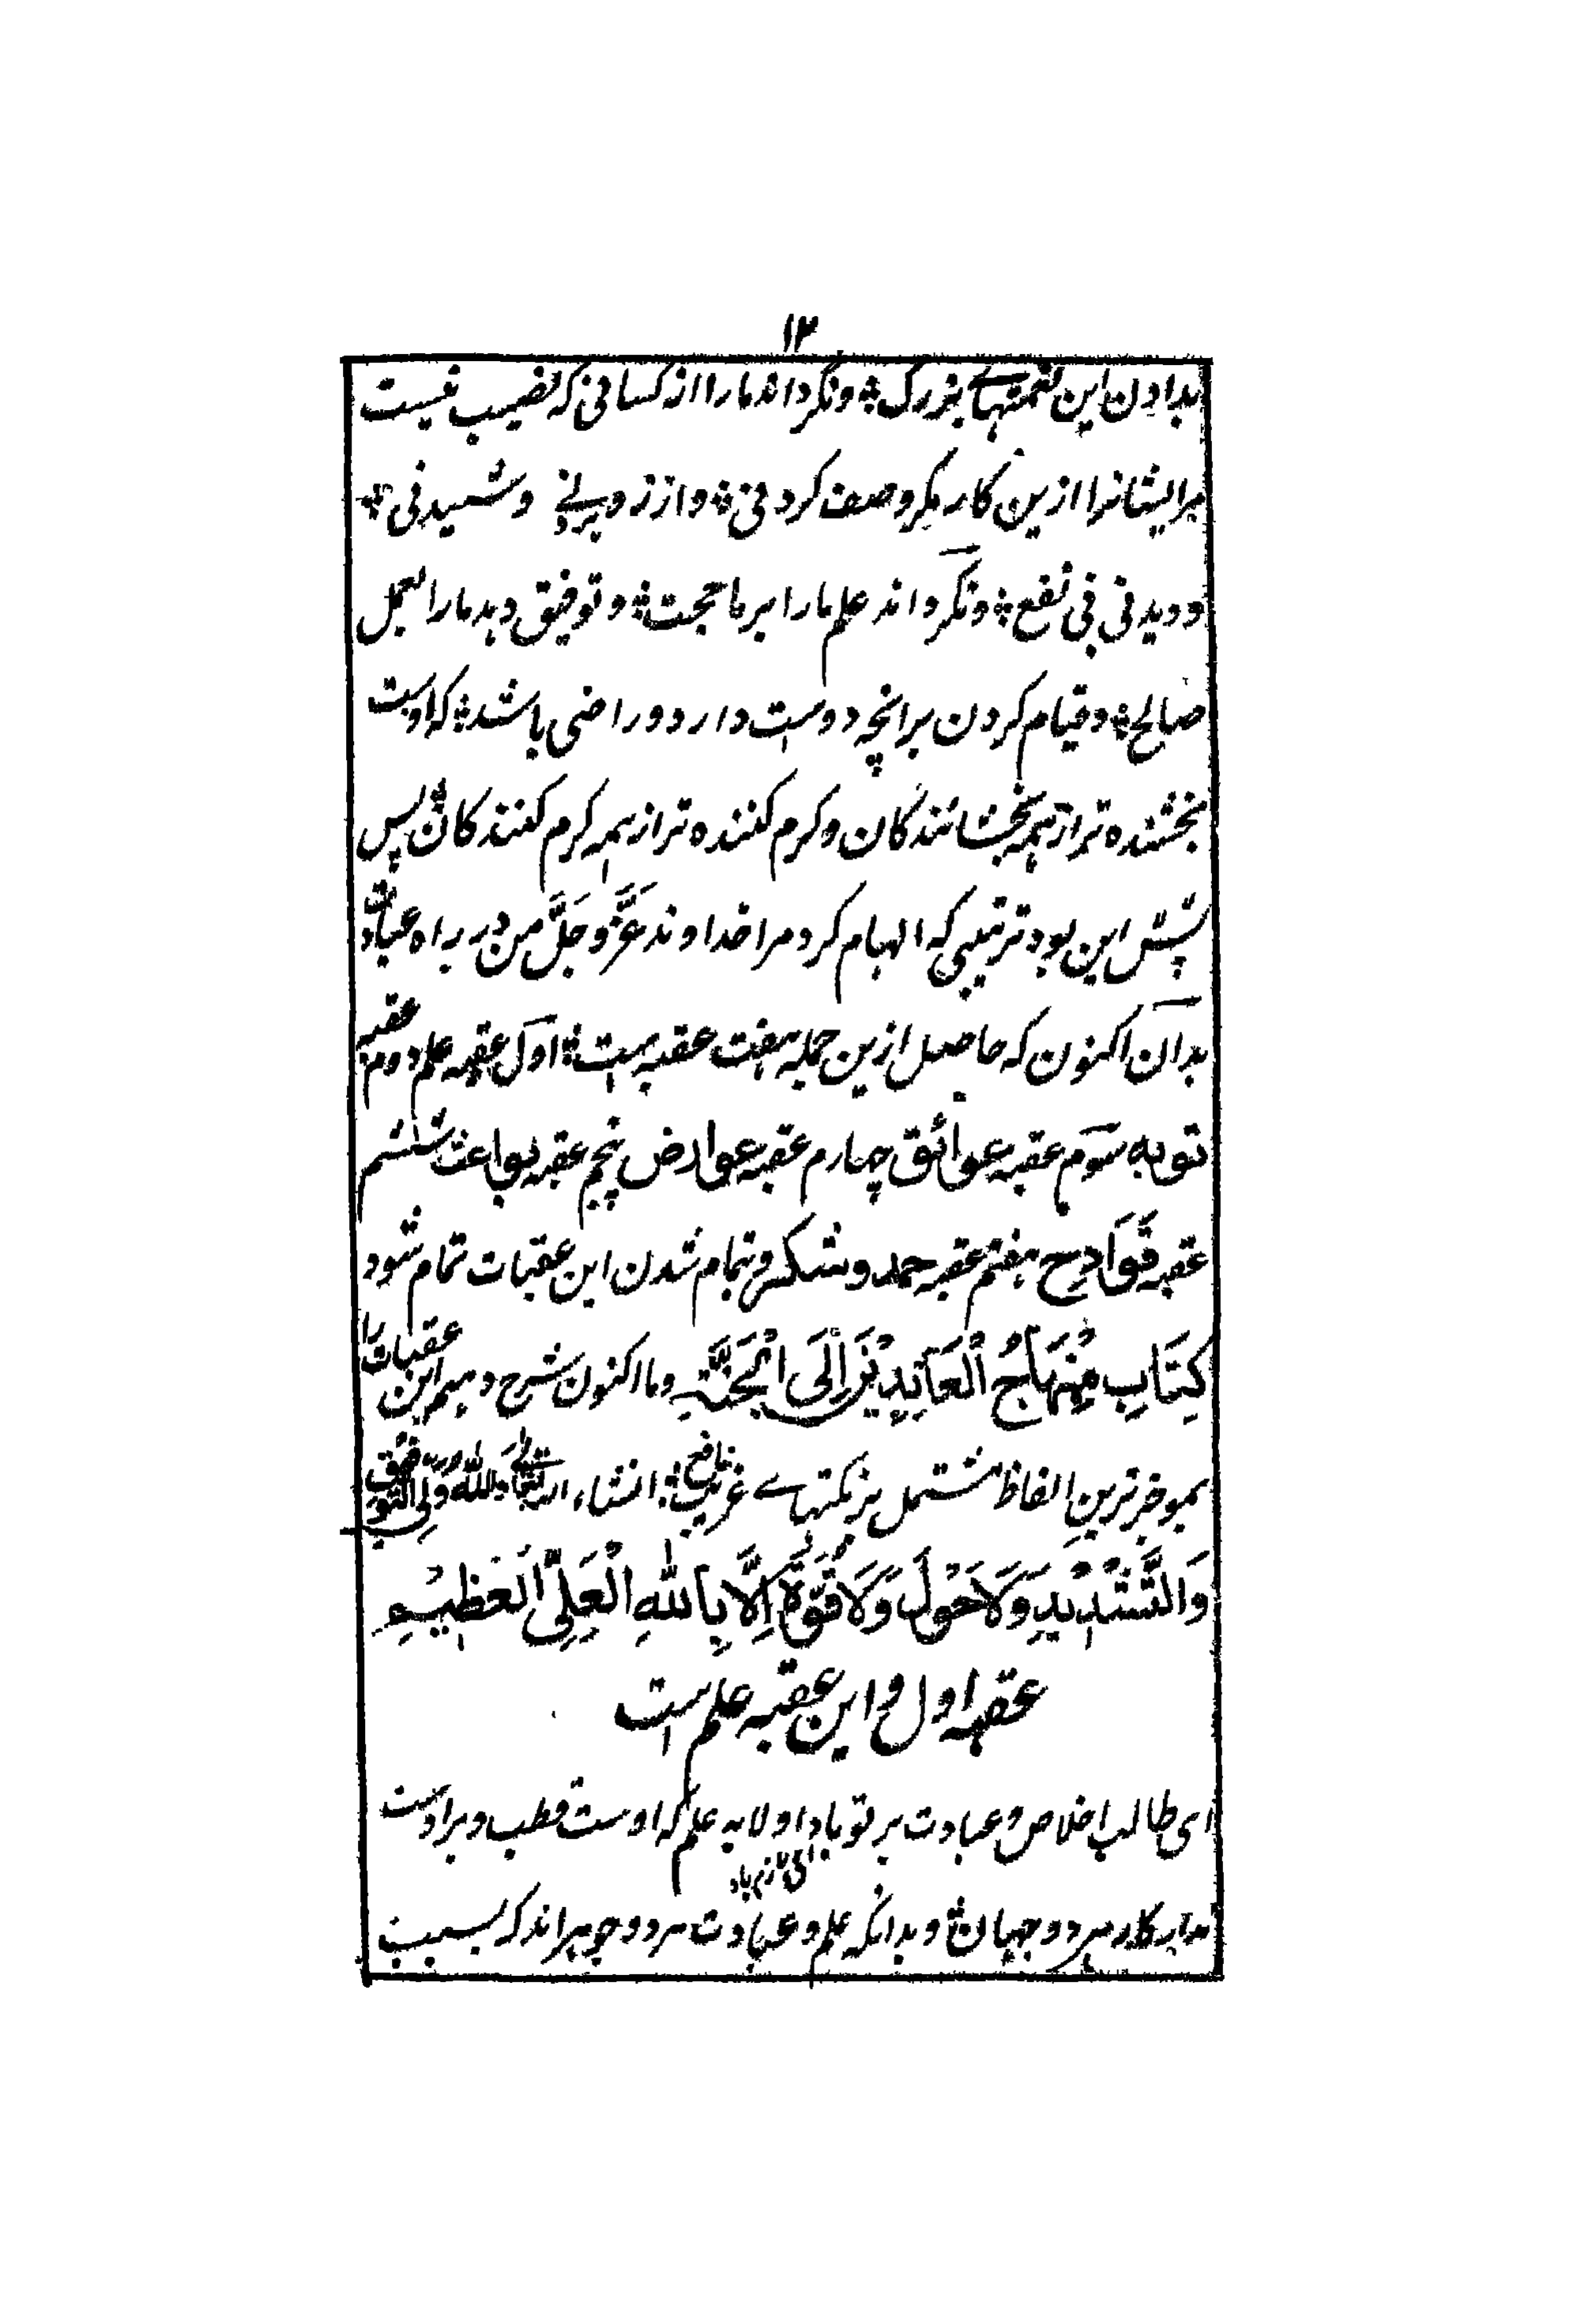 ۱۳
بدادن این نعمتهاے بزرگ ؞ ونگرداند مارا از کسانی که نصیب نیست
مرایشانرا ازین کار مگر وصف کردنی ؞ و از وشنیدنی ؞
و دیدنی بی نفع ؞ ونگرداند علم مارا بر ما حجت ؞ و توفیق دهد مارا بعمل
صالح ؞ وقیام کردن برانچه دوست دارد و راضی باشد ؞ که اوست
بخشنده تر از همه بخشائندگان وکرم کننده تر از همه کرم کنندگان ؞ پس
این بود ترتیبی که الهام کرد مرا خداوند عَزَّ وَجَلَّ من در راه عبادت
بدان اکنون که حاصل ازین جمله هفت عقبه است ؞ اوّل عقبه علم دوم عقبه
توبه سوّم عقبه عوائق چہارم عقبه عوارض پنجم عقبه بواعث ششم
عقبه قَوَادِح ہفتم عقبه حمد وشکر و تمام شدن این عقبات تمام شود
کِتَابِ مِنْهَاجُ الْعَابِدِیْنَ اِلَی الْجَنَّةِ وما اکنون شرح دہیم این عقبات را
بموجز ترین الفاظ مشتمل بر نکتہاے غریب نافع ؞ انشاء الله تعالے وَاللّٰهُ وَلِیُّ التَّوفِیقِ
وَالتَّسْدِیْدِ وَلَا حَوْلَ وَلَا قُوَّةَ اِلَّا بِاللّٰهِ الْعَلِیِّ الْعَظِیْمِ
عقبه اول و این عقبه علم است
ای طالب اخلاص و عبادت بر تو باد اولا به علم که اوست قطب و بر اوست
ای لازم باد
مدار کار هر دو جہان ؞ و بدانکه علم و عبادت هر دو جوہر اند که بسبب